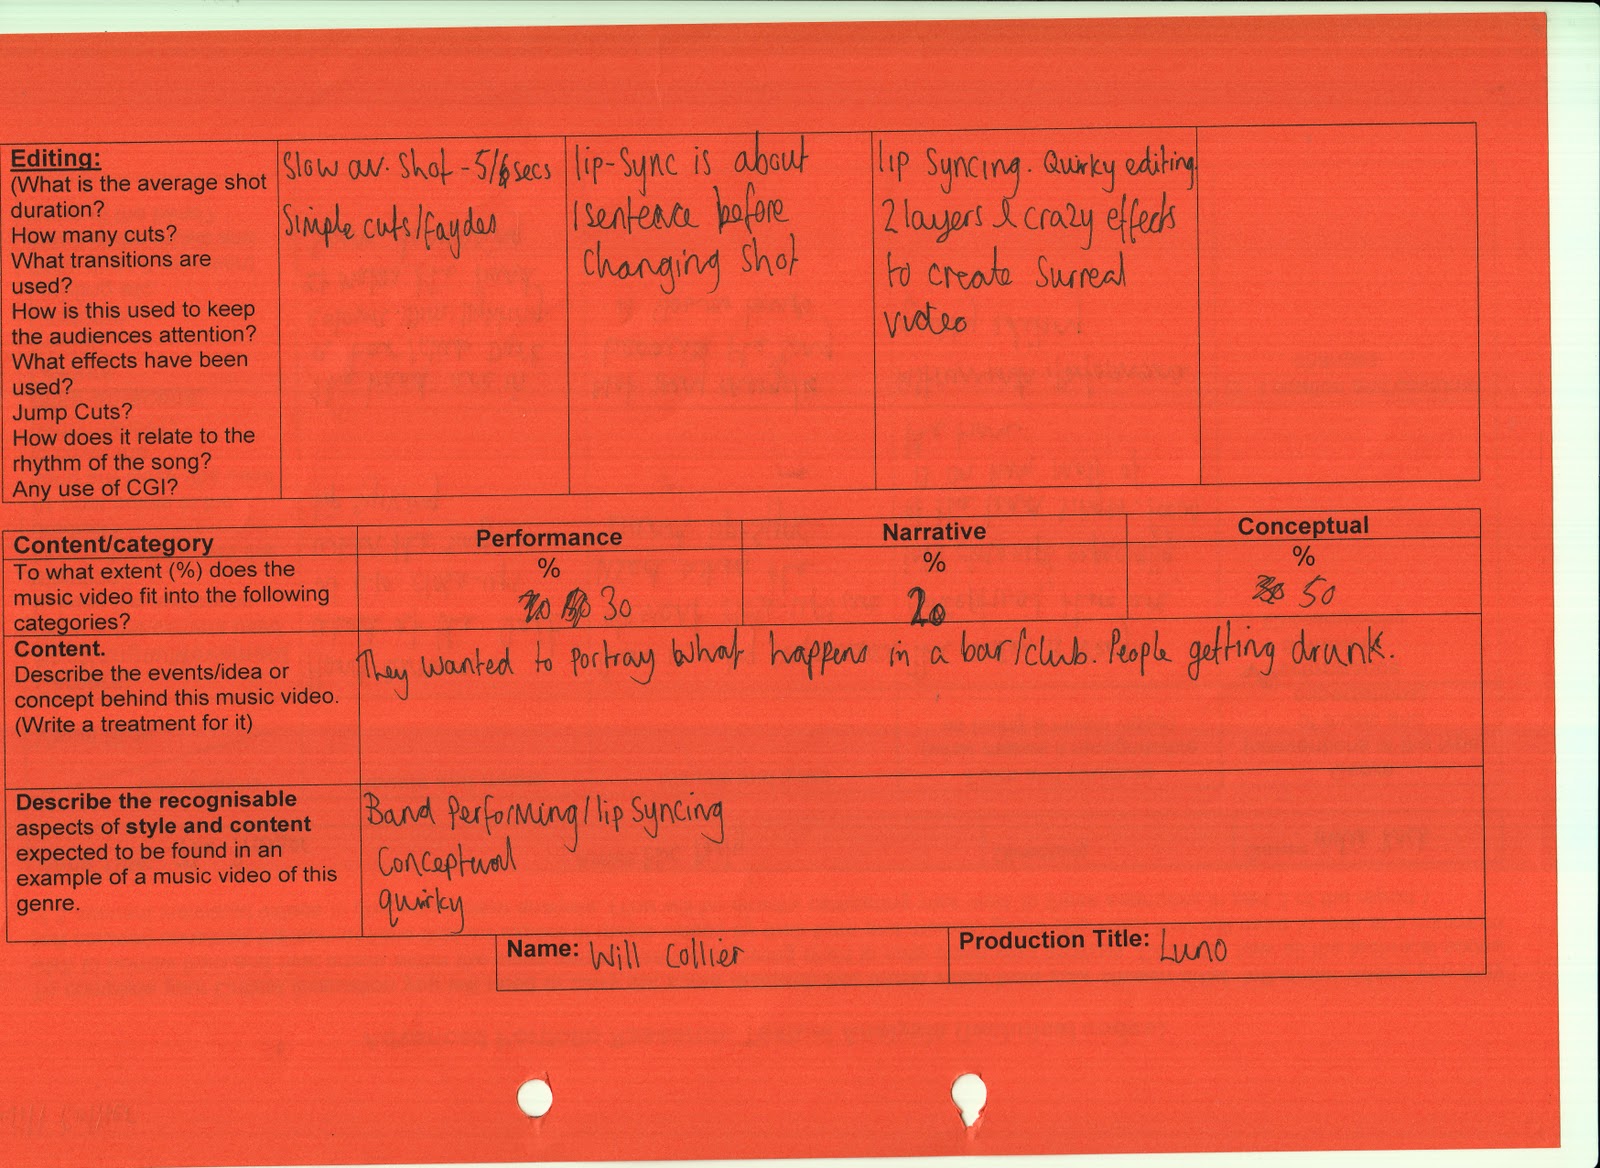 Editing:
(What is the average shot
duration?
How many cuts?
What transitions are
used?
How is this used to keep
the audiences attention?
What effects have been
used?
Jump Cuts?
How does it relate to the
rhythm of the song?
Any use of CGI?
Slow av. Shot - 5/6 secs
Simple cuts/faydes
lip-Sync is about
1 sentence before
changing shot
lip Syncing. Quirky editing.
2 layers & crazy effects
to create Surreal
video
Content/category
Performance
Narrative
Conceptual
To what extent (%) does the
music video fit into the following
categories?
%
30
%
20
%
50
Content.
Describe the events/idea or
concept behind this music video.
(Write a treatment for it)
They wanted to portray what happens in a bar/club. People getting drunk.
Describe the recognisable
aspects of style and content
expected to be found in an
example of a music video of this
genre.
Band Performing/lip Syncing
Conceptual
quirky
Name: Will Collier
Production Title: Luno